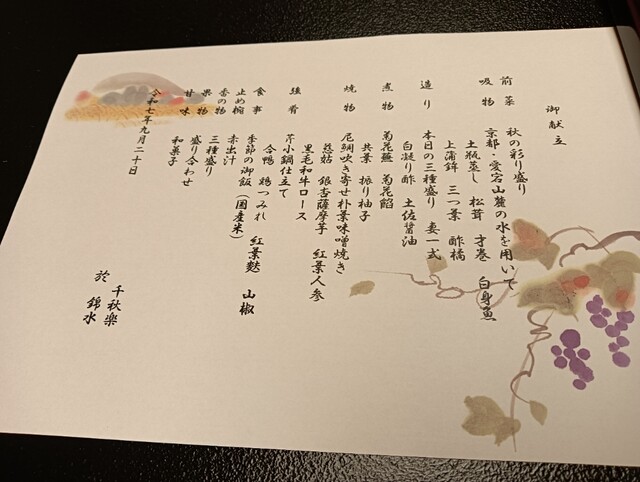 御献立
前菜 秋の彩り盛り
京都・愛宕山麓の水を用いて
吸物 土瓶蒸し 松茸 才巻 白身魚
上蒲鉾 三つ葉 酢橘
造り 本日の三種盛り 妻一式
白凝り酢 土佐醤油
煮物 菊花蕪 菊花餡
共葉 振り柚子
焼物 尼鯛吹き寄せ朴葉味噌焼き
慈姑 銀杏薩摩芋 紅葉人参
強肴 黒毛和牛ロース
芹小鍋仕立て
合鴨 鶏つみれ 紅葉麩 山椒
食事 季節の御飯(国産米)
止め椀 赤出汁
香の物 三種盛り
果物 盛り合わせ
甘味 和菓子
令和七年九月二十日
千秋楽
於 錦水